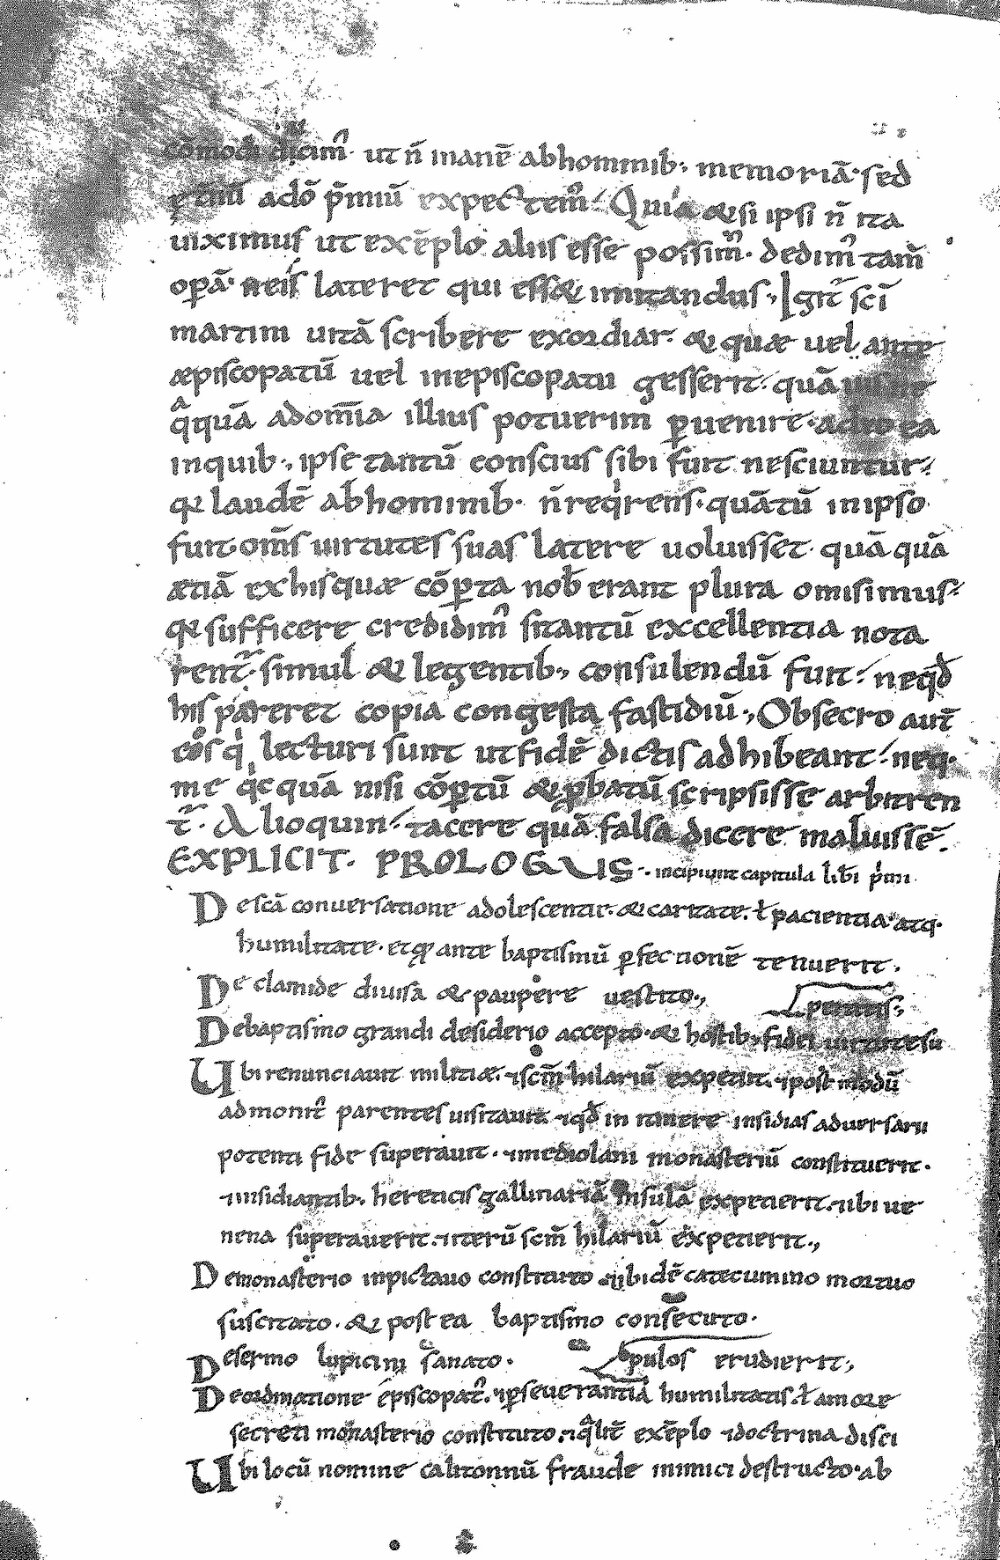 cōmodi dicim᷒ ut n̄ inanē abhominib; memoriā· sed
ętnā adō p̄miū expectem᷒. Quia & si ipsi n̄ ita
uiximus ut exēplo aliis esse possim᷒. dedim᷒ tam̄
opā· neis lateret qui ess& imitandus., Igit᷒ sc̄i
martini uitā scribere exordiar. & quæ uel ante
æpiscopatū uel inepiscopatu gesserit. quā uis ne
qͣquā adom̄ia illius potuerim ꝑuenire. adeo ea
inquib., ipse tantū conscius sibi fuit nesciuntur.
q laudē abhominib. n̄ req̇rens. quātū inipso
fuit om̄s uirtutes suas latere uoluisset. quā quā
ætiā exhis quæ cōꝑta nob̄ erant plura omisimus.
q sufficere credidim᷒ si tantū excellentia nota
rent᷒. simul & legentib., consulendū fuit. neqđ
his pareret copia congesta fastidiū., Obsecro aut̄
eos q̇ lecturi sunt ut fidē dictis adhibeant. neq·
me q̇cquā nisi cōꝑtū & ꝓbatū scripsisse arbitren
t᷒. Alioquin. tacere quā falsa dicere maluissē.
EXPLICIT. PROLOGUS. incipiunt capitula lib̄i ṗmi
De sc̄a conuersatione adolescentie. & caritate. ł pacientia. atq·
humilitate. et q ante baptismū ꝑfectionē tenuerit.
De clamide diuisa & paupere uestito., ꝑentis;
De baptismo grandi desiderio accepto. & hostib; fidei uirtute su
Ubi renunciauit militiæ. ⁊ sc̄m hilariū expetiit. ⁊ post modū
admonit᷒ parentes uisitauit ⁊ qđ in itinere insidias aduersarii
potenti fide superauit. ⁊ mediolani monasteriū constituerit.
⁊ insidiantib. hereticis gallinariā insulā expetierit. ⁊ ibi ue
nena superauerit. ⁊ iterū sc̄m hilariū expetierit.,
De monasterio inpictauo constituto ⁊ ibidē catecumino mortuo
suscitato. & postea baptismo consecuto.
De sermo lupicini sanato. pulos erudierit;
De ordinatione episcopat᷒. ⁊ ꝑseuerantia humilitatis. ł amore
secreti monasterio constituto. ⁊ qͣlit̄ exēplo ⁊ doctrina disci
Ubi locū nomine calitonnū fraude inimici destructo. ab